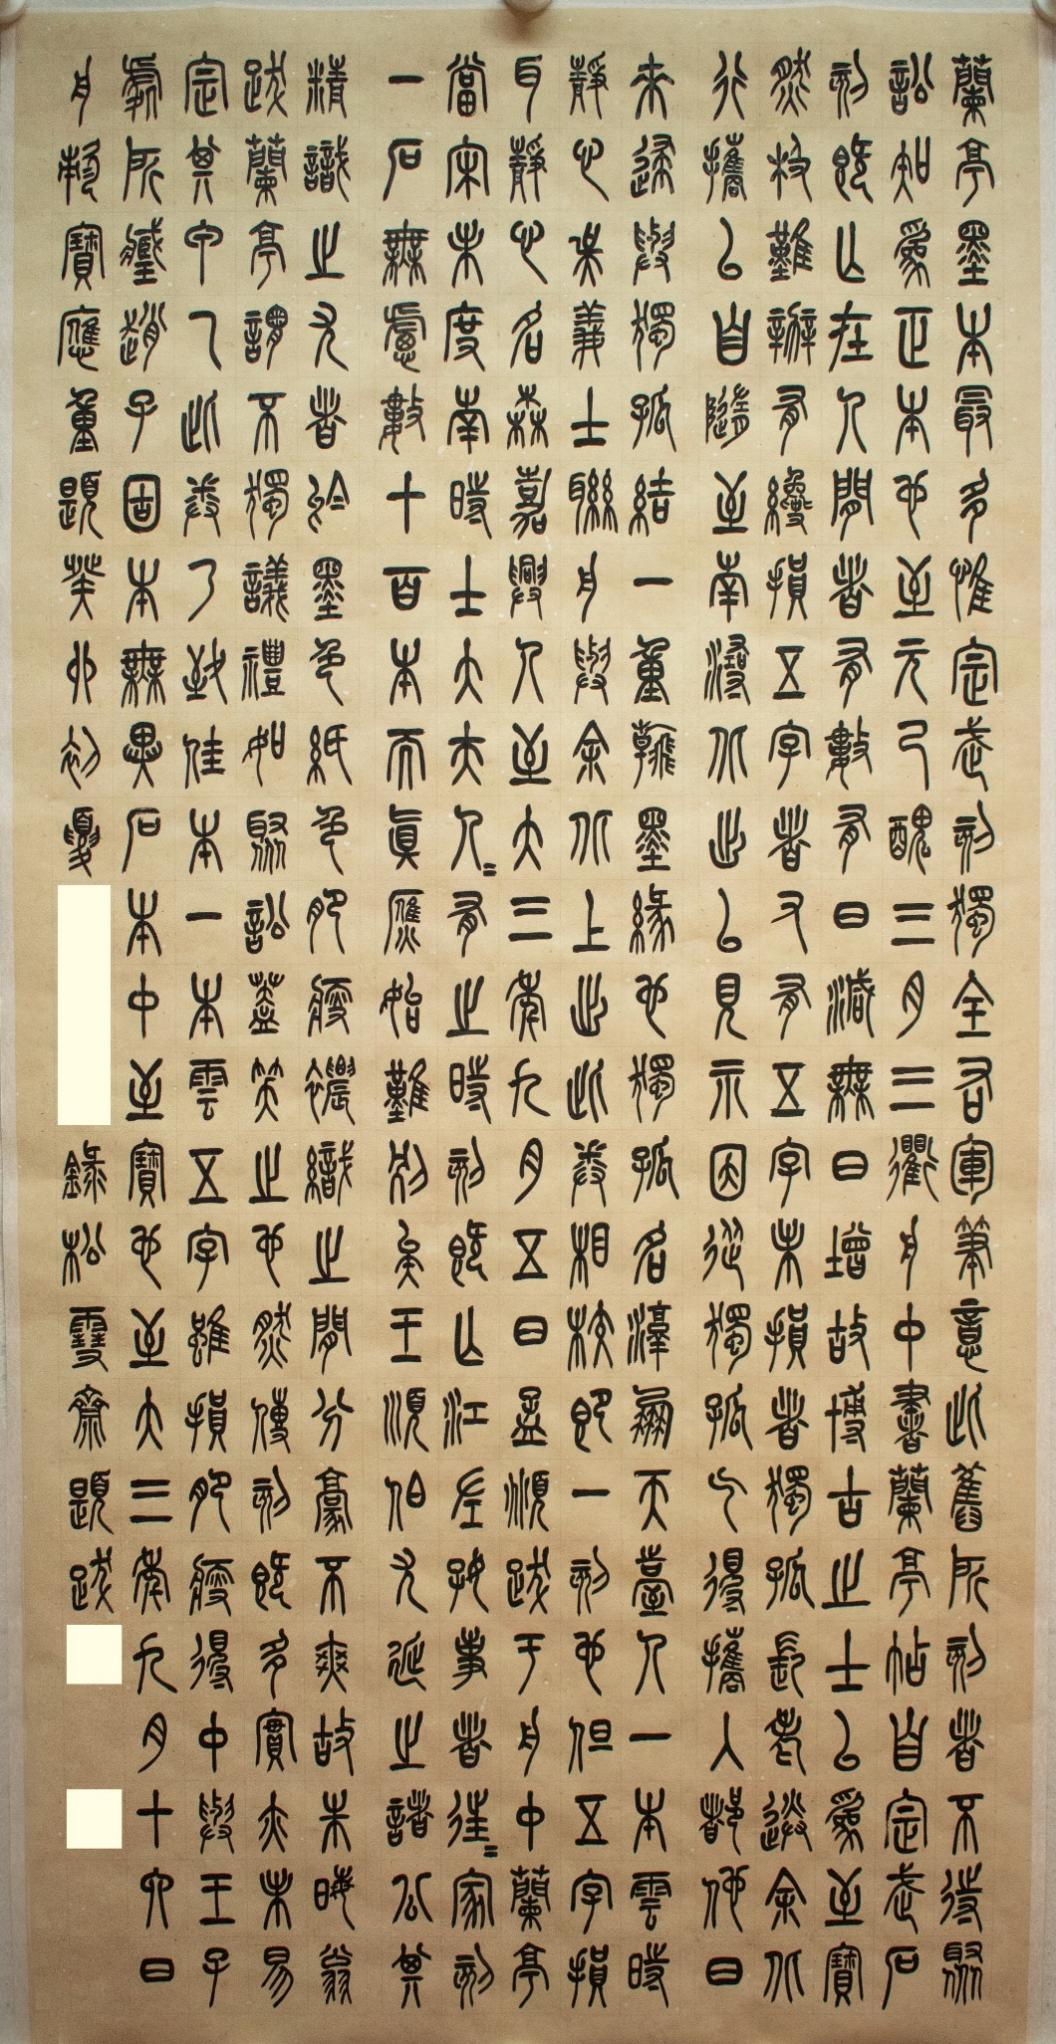 蘭亭墨本最多惟定武刻獨全右軍筆意此舊所刻者不待聚
訟知爲正本也至元己醜三月三衢舟中書蘭亭帖自定武石
刻既亡在人間者有數有日減無日增故博古之士以爲至寶
然極難辨有纔損五字者又有五字未損者獨孤長老送余北
行攜以自隨至南潯北出以見示因從獨孤乞得攜入都他日
來歸與獨孤結一重翰墨緣也獨孤名淳朋天臺人一本雲時
靜心異義士聯舟與余北上出此卷相校即一刻也但五字損
耳靜心名森嘉興人至大三年九月五日孟頫跋于舟中蘭亭
當宋未度南時士大夫人〻有之時刻既亡江左好事者往〻家刻
一石無慮數十百本而真贋始難別矣王順伯尤延之諸公其
精識之尤者於墨色紙色肥瘦穠纖之間分毫不爽故朱晦翁
跋蘭亭謂不獨議禮如聚訟蓋笑之也然傳刻既多實亦未易
定其甲乙此卷乃致佳本一本雲五字雖損肥瘦得中與王子
慶所藏趙子固本無異石本中至寶也至大三年九月十六日
舟次寶應重題癸卯初夏錄松雪齋題跋